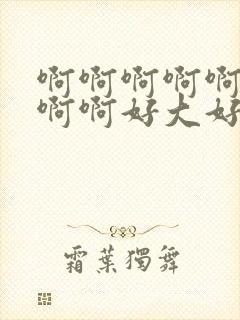 啊啊啊啊啊
啊啊好大好
霜葉獨舞